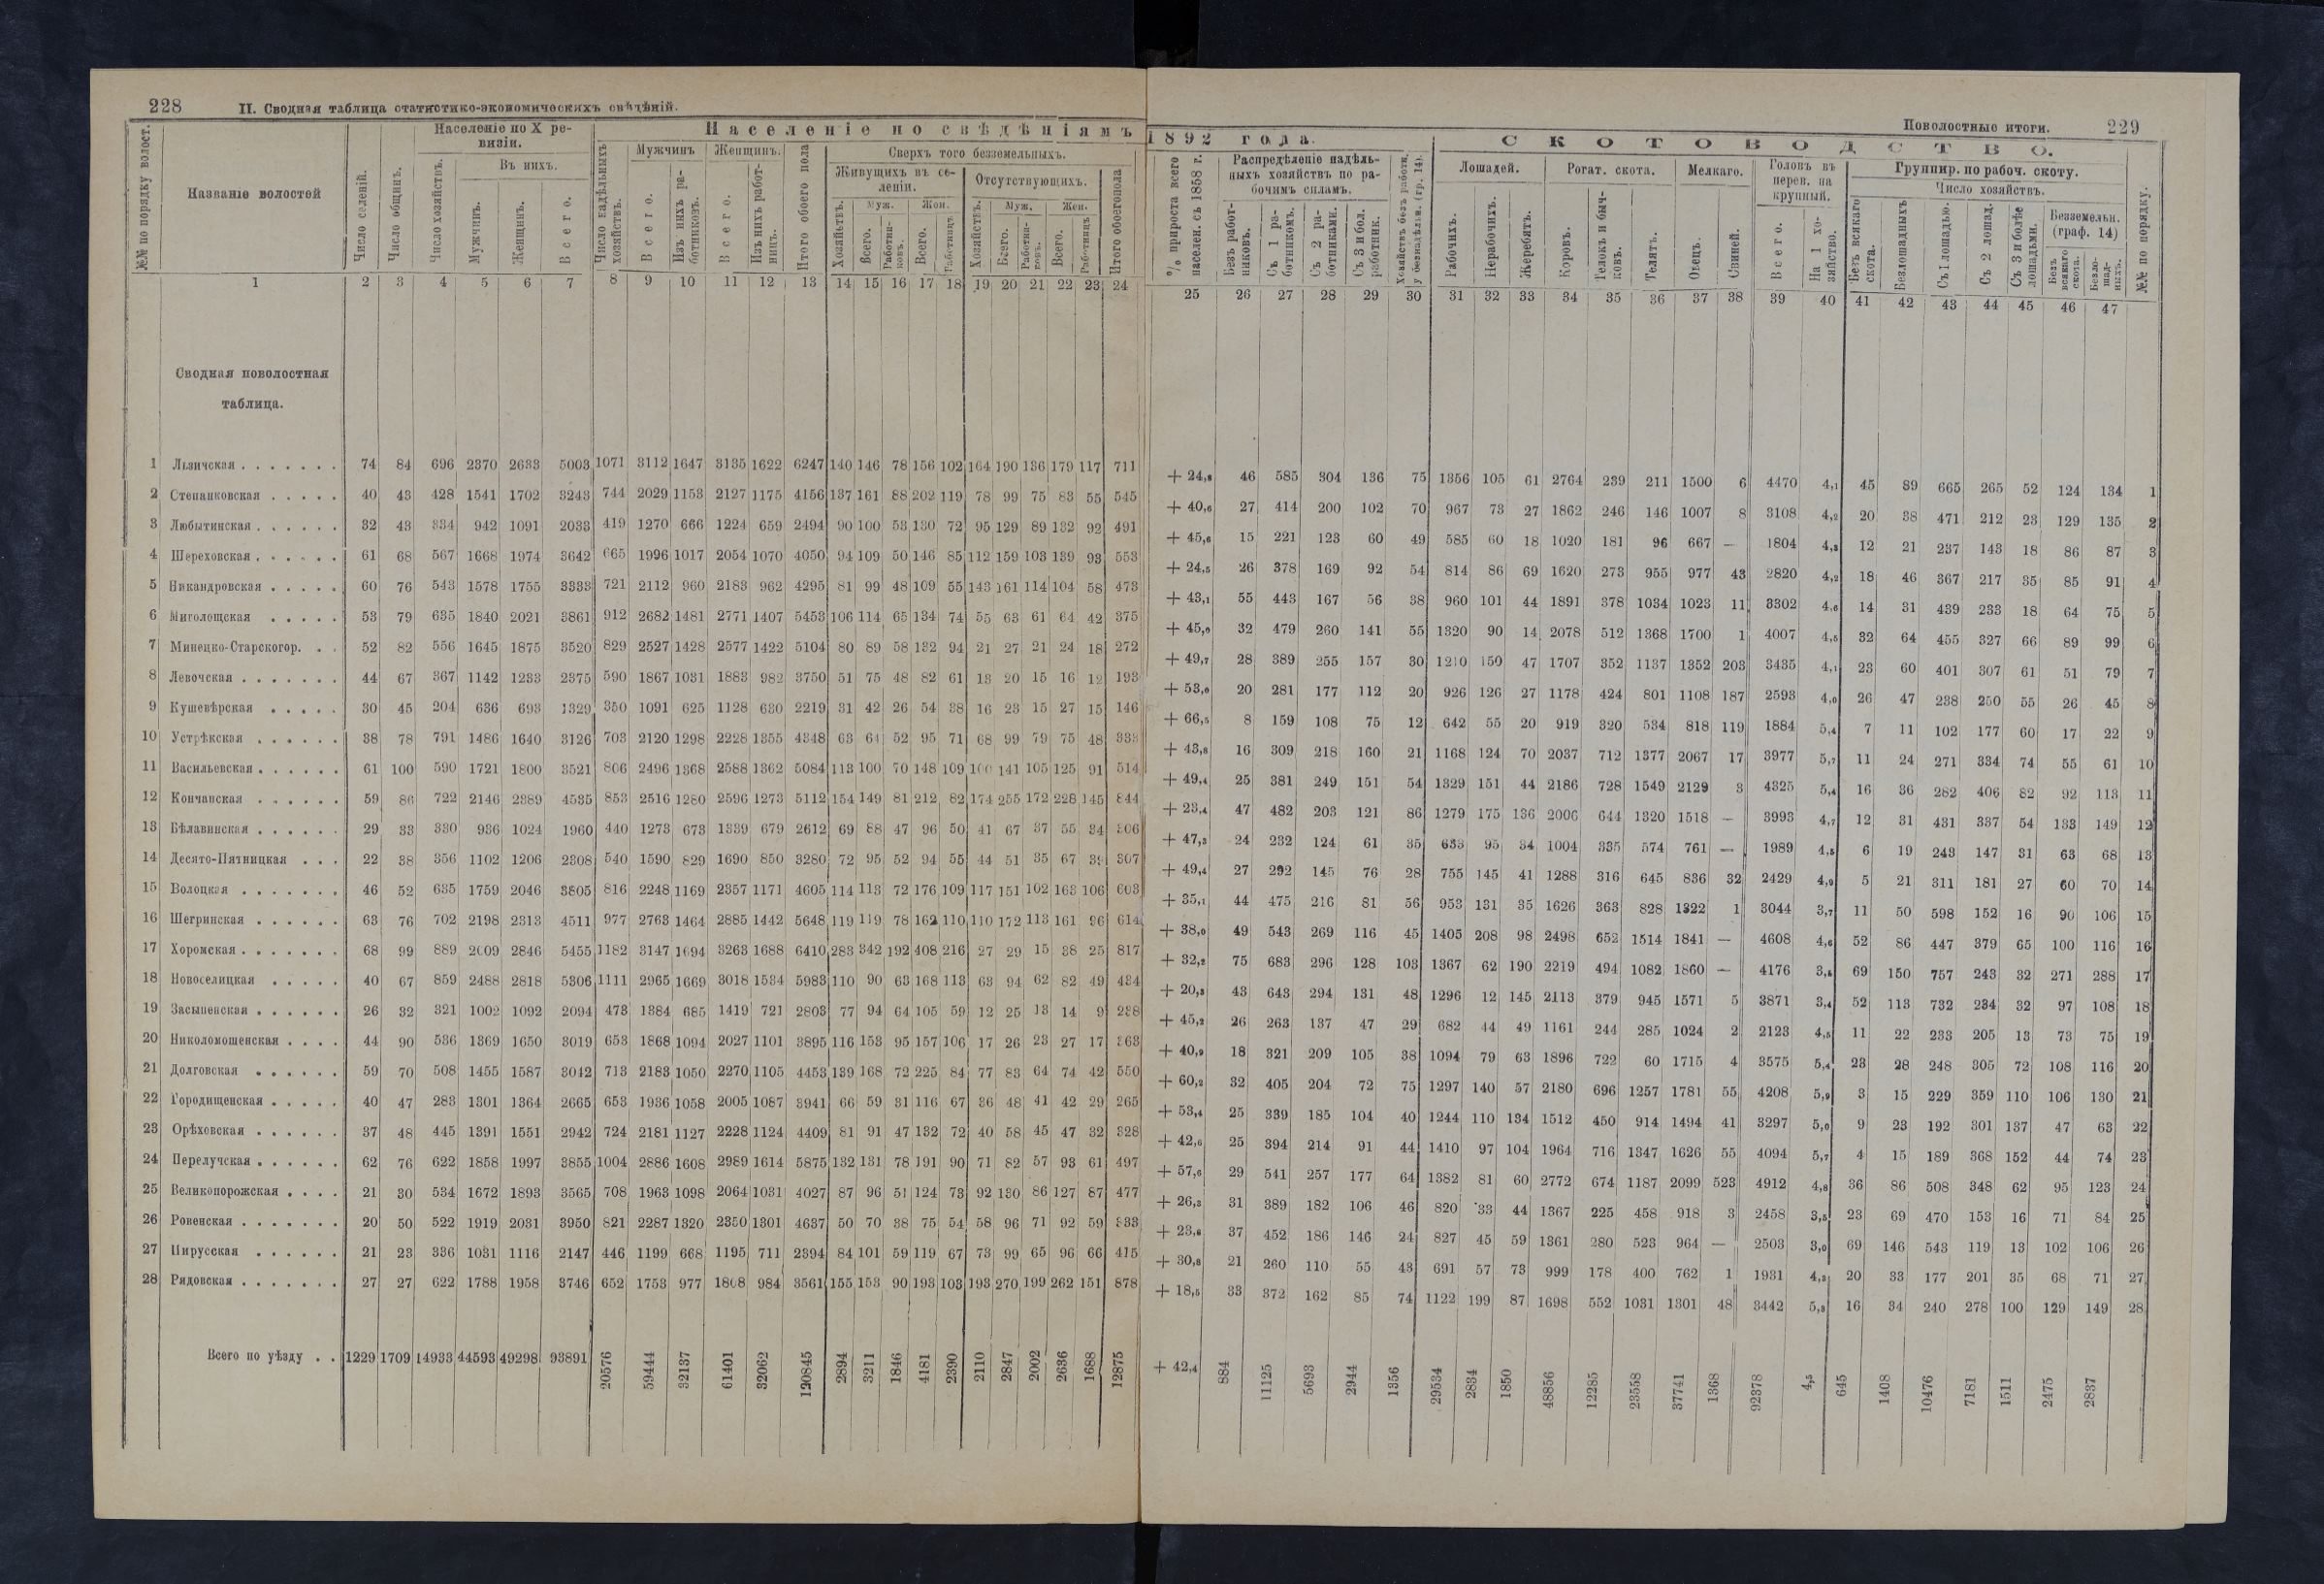 228 II. Сводная таблица статистико-экономическихъ свѣдѣній.
Поволостные итоги. 229
№№ по порядку волост.
Названіе волостей
Число селеній.
Число общинъ.
Населеніе по X ревизіи.
Число хозяйствъ.
Въ нихъ.
Мужчинъ.
Женщинъ.
Всего.
Населеніе по свѣдѣніямъ 1892 года.
Число надѣльныхъ хозяйствъ.
Мужчинъ
Всего.
Изъ нихъ работниковъ.
Женщинъ.
Всего.
Изъ нихъ работницъ.
Итого обоего пола
Сверхъ того безземельныхъ.
Живущихъ въ селеніи.
Хозяйствъ.
Муж.
Всего.
Работниковъ.
Жен.
Всего.
Работницъ
Отсутствующихъ.
Хозяйствъ.
Муж.
Всего.
Работниковъ.
Жен.
Всего.
Работницъ
Итого обоего пола
% прироста всего населен. съ 1858 г.
Распредѣленіе надѣльныхъ хозяйствъ по рабочимъ силамъ.
Безъ работниковъ.
Съ 1 работникомъ.
Съ 2 работниками.
Съ 3 и бол. работник.
Хозяйствъ безъ работн. у безнадѣльн. (гр. 14).
СКОТОВОДСТВО.
Лошадей.
Рабочихъ.
Нерабочихъ.
Жеребятъ.
Рогат. скота.
Коровъ.
Телокъ и бычковъ.
Телятъ.
Мелкаго.
Овецъ.
Свиней.
Головъ въ перев. на крупный.
Всего.
На 1 хозяйство.
Группир. по рабоч. скоту.
Число хозяйствъ.
Безъ всякаго скота.
Безлошадныхъ
Съ 1 лошадью.
Съ 2 лошад.
Съ 3 и болѣе лошадьми.
Безземельн. (граф. 14)
Безъ всякаго скота.
Безлошадныхъ.
№№ по порядку.
1 2 3 4 5 6 7 8 9 10 11 12 13 14 15 16 17 18 19 20 21 22 23 24 25 26 27 28 29 30 31 32 33 34 35 36 37 38 39 40 41 42 43 44 45 46 47
Сводная поволостная
таблица.
1 Льзичская 74 84 696 2370 2633 5003 1071 3112 1647 3135 1622 6247 140 146 78 156 102 164 190 136 179 117 711 + 24,8 46 585 304 136 75 1356 105 61 2764 239 211 1500 6 4470 4,1 45 89 665 265 52 124 134 1
2 Степанковская 40 43 428 1541 1702 3243 744 2029 1153 2127 1175 4156 137 161 88 202 119 78 99 75 83 55 545 + 40,6 27 414 200 102 70 967 73 27 1862 246 146 1007 8 3108 4,2 20 38 471 212 23 129 135 2
3 Любытинская 32 43 334 942 1091 2033 419 1270 666 1224 659 2494 90 100 53 130 72 95 129 89 132 92 491 + 45,6 15 221 123 60 49 585 60 18 1020 181 96 667 — 1804 4,3 12 21 237 143 18 86 87 3
4 Шереховская 61 68 567 1668 1974 3642 665 1996 1017 2054 1070 4050 94 109 50 146 85 112 159 103 139 93 553 + 24,5 26 378 169 92 54 814 86 69 1620 273 955 977 43 2820 4,2 18 46 367 217 35 85 91 4
5 Никандровская 60 76 543 1578 1755 3333 721 2112 960 2183 962 4295 81 99 48 109 55 143 161 114 104 58 473 + 43,1 55 443 167 56 38 960 101 44 1891 378 1034 1023 11 3302 4,6 14 31 439 233 18 64 75 5
6 Миголощская 53 79 635 1840 2021 3861 912 2682 1481 2771 1407 5453 106 114 65 134 74 55 63 61 64 42 375 + 45,9 32 479 260 141 55 1320 90 14 2078 512 1368 1700 1 4007 4,5 32 64 455 327 66 89 99 6
7 Минецко-Старскогор. 52 82 556 1645 1875 3520 829 2527 1428 2577 1422 5104 80 89 58 132 94 21 27 21 24 18 272 + 49,7 28 389 255 157 30 1210 150 47 1707 352 1137 1352 203 3435 4,1 23 60 401 307 61 51 79 7
8 Левочская 44 67 367 1142 1233 2375 590 1867 1031 1883 982 3750 51 75 48 82 61 13 20 15 16 12 193 + 53,0 20 281 177 112 20 926 126 27 1178 424 801 1108 187 2593 4,0 26 47 238 250 55 26 45 8
9 Кушевѣрская 30 45 204 636 693 1329 350 1091 625 1128 630 2219 31 42 26 54 38 16 23 15 27 15 146 + 66,5 8 159 108 75 12 642 55 20 919 320 534 818 119 1884 5,4 7 11 102 177 60 17 22 9
10 Устрѣкская 38 78 791 1486 1640 3126 703 2120 1298 2228 1355 4348 63 64 52 95 71 68 99 79 75 48 333 + 43,8 16 309 218 160 21 1168 124 70 2037 712 1377 2067 17 3977 5,7 11 24 271 334 74 55 61 10
11 Васильевская 61 100 590 1721 1800 3521 806 2496 1368 2588 1362 5084 113 100 70 148 109 100 141 105 125 91 514 + 49,4 25 381 249 151 54 1329 151 44 2186 728 1549 2129 3 4325 5,4 16 36 282 406 82 92 113 11
12 Кончанская 59 86 722 2146 2389 4535 853 2516 1280 2596 1273 5112 154 149 81 212 82 174 255 172 228 145 844 + 23,4 47 482 203 121 86 1279 175 136 2006 644 1320 1518 — 3993 4,7 12 31 431 337 54 133 149 12
13 Бѣлавинская 29 33 330 936 1024 1960 440 1273 673 1339 679 2612 69 88 47 96 50 41 67 37 55 34 306 + 47,3 24 232 124 61 35 633 95 34 1004 335 574 761 — 1989 4,5 6 19 243 147 31 63 68 13
14 Десято-Пятницкая 22 38 356 1102 1206 2308 540 1590 829 1690 850 3280 72 95 52 94 55 44 51 35 67 307 + 49,4 27 292 145 76 28 755 145 41 1288 316 645 836 32 2429 4,9 5 21 311 181 27 60 70 14
15 Волоцкая 46 52 635 1759 2046 3805 816 2248 1169 2357 1171 4605 114 113 72 176 109 117 151 102 163 106 603 + 35,1 44 475 216 81 56 953 131 35 1626 363 828 1322 1 3044 3,7 11 50 598 152 16 90 106 15
16 Шегринская 63 76 702 2198 2313 4511 977 2763 1464 2885 1442 5648 119 119 78 162 110 110 172 113 161 96 614 + 38,0 49 543 269 116 45 1405 208 98 2498 652 1514 1841 — 4608 4,6 52 86 447 379 65 100 116 16
17 Хоромская 68 99 889 2609 2846 5455 1182 3147 1694 3263 1688 6410 283 342 192 408 216 27 29 15 38 25 817 + 32,2 75 683 296 128 103 1367 62 190 2219 494 1082 1860 — 4176 3,5 69 150 757 243 32 271 288 17
18 Новоселицкая 40 67 859 2488 2818 5306 1111 2965 1669 3018 1534 5983 110 90 63 168 113 63 94 62 82 49 434 + 20,3 43 643 294 131 48 1296 12 145 2113 379 945 1571 5 3871 3,4 52 113 732 234 32 97 108 18
19 Засыпенская 26 32 321 1002 1092 2094 473 1384 685 1419 721 2803 77 94 64 105 59 12 25 13 14 9 238 + 45,2 26 263 137 47 29 682 44 49 1161 244 285 1024 2 2123 4,5 11 22 233 205 13 73 75 19
20 Николомошенская 44 90 536 1369 1650 3019 653 1868 1094 2027 1101 3895 116 153 95 157 106 17 26 23 27 17 363 + 40,9 18 321 209 105 38 1094 79 63 1896 722 60 1715 4 3575 5,4 23 28 248 305 72 108 116 20
21 Долговская 59 70 508 1455 1587 3042 713 2183 1050 2270 1105 4453 139 168 72 225 84 77 83 64 74 42 550 + 60,2 32 405 204 72 75 1297 140 57 2180 696 1257 1781 55 4208 5,9 3 15 229 359 110 106 130 21
22 Городищенская 40 47 283 1301 1364 2665 653 1936 1058 2005 1087 3941 66 59 31 116 67 36 48 41 42 29 265 + 53,4 25 339 185 104 40 1244 110 134 1512 450 914 1494 41 3297 5,0 9 23 192 301 137 47 63 22
23 Орѣховская 37 48 445 1391 1551 2942 724 2181 1127 2228 1124 4409 81 91 47 132 72 40 58 45 47 32 328 + 42,6 25 394 214 91 44 1410 97 104 1964 716 1347 1626 55 4094 5,7 4 15 189 368 152 44 74 23
24 Перелучская 62 76 622 1858 1997 3855 1004 2886 1608 2989 1614 5875 132 131 78 191 90 71 82 57 93 61 497 + 57,6 29 541 257 177 64 1382 81 60 2772 674 1187 2099 523 4912 4,8 36 86 508 348 62 95 123 24
25 Великопорожская 21 30 534 1672 1893 3565 708 1963 1098 2064 1031 4027 87 96 51 124 73 92 130 86 127 87 477 + 26,3 31 389 182 106 46 820 33 44 1367 225 458 918 3 2458 3,5 23 69 470 153 16 71 84 25
26 Ровенская 20 50 522 1919 2031 3950 821 2287 1320 2350 1301 4637 50 70 38 75 54 58 96 71 92 59 333 + 23,8 37 452 186 146 24 827 45 59 1361 280 523 964 — 2503 3,0 69 146 543 119 13 102 106 26
27 Пирусская 21 23 336 1031 1116 2147 446 1199 668 1195 711 2394 84 101 59 119 67 73 99 65 96 66 415 + 30,8 21 260 110 55 43 691 57 73 999 178 400 762 1 1931 4,3 20 33 177 201 35 68 71 27
28 Рядовская 27 27 622 1788 1958 3746 652 1753 977 1808 984 3561 155 153 90 193 103 193 270 199 262 151 878 + 18,5 33 372 162 85 74 1122 199 87 1698 552 1031 1301 48 3442 5,3 16 34 240 278 100 129 149 28
Всего по уѣзду 1229 1709 14933 44593 49298 93891 20576 59444 32137 61401 32062 120845 2894 3211 1846 4181 2390 2110 2847 2002 2636 1688 12875 + 42,4 884 11125 5693 2944 1356 29534 2834 1850 48856 12285 23558 37741 1368 92378 4,5 645 1408 10476 7181 1511 2475 2837